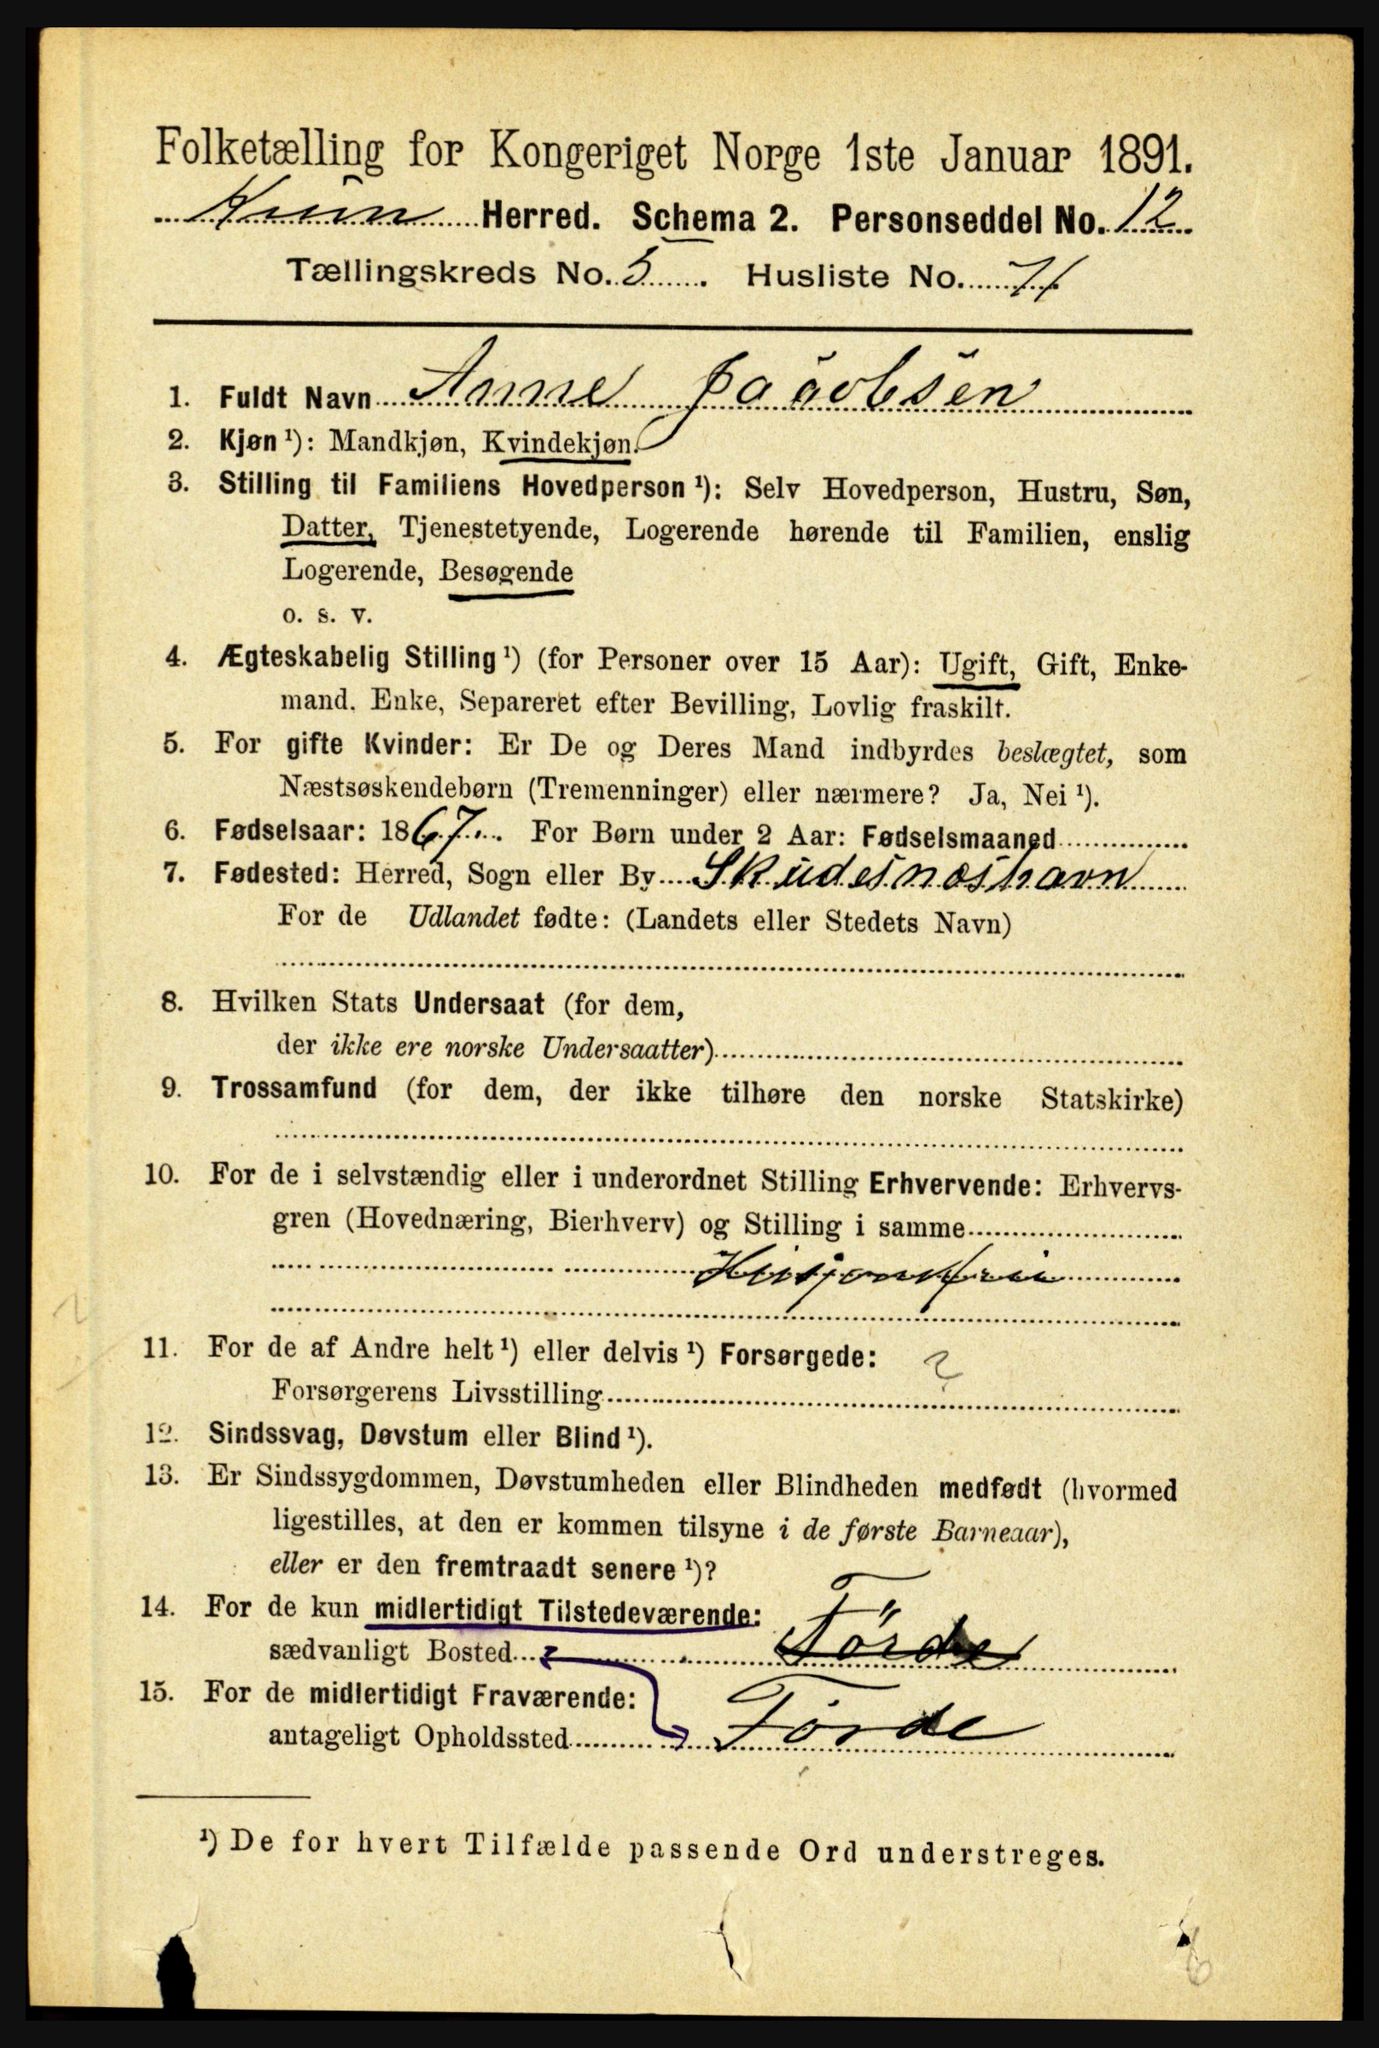 Folketælling for Kongeriget Norge 1ste Januar 1891.
Kinn Herred. Schema 2. Personseddel No. 12
Tællingskreds No. 5. Husliste No. 71
1. Fuldt Navn Anne Jacobsen
2. Kjøn ¹): Mandkjøn, Kvindekjøn.
3. Stilling til Familiens Hovedperson ¹): Selv Hovedperson, Hustru, Søn,
Datter, Tjenestetyende, Logerende hørende til Familien, enslig
Logerende, Besøgende
o. s. v.
4. Ægteskabelig Stilling ¹) (for Personer over 15 Aar): Ugift, Gift, Enke-
mand, Enke, Separeret efter Bevilling, Lovlig fraskilt.
5. For gifte Kvinder: Er De og Deres Mand indbyrdes beslægtet, som
Næstsøskendebørn (Tremenninger) eller nærmere? Ja, Nei ¹).
6. Fødselsaar: 1867. For Børn under 2 Aar: Fødselsmaaned
7. Fødested: Herred, Sogn eller By Skudesneshavn
For de Udlandet fødte: (Landets eller Stedets Navn)
8. Hvilken Stats Undersaat (for dem,
der ikke ere norske Undersaatter)
9. Trossamfund (for dem, der ikke tilhøre den norske Statskirke)
10. For de i selvstændig eller i underordnet Stilling Erhvervende: Erhvervs-
gren (Hovednæring, Bierhverv) og Stilling i samme
11. For de af Andre helt ¹) eller delvis ¹) Forsørgede: ?
Forsørgerens Livsstilling
12. Sindssvag, Døvstum eller Blind ¹).
13. Er Sindssygdommen, Døvstumheden eller Blindheden medfødt (hvormed
ligestilles, at den er kommen tilsyne i de første Barneaar),
eller er den fremtraadt senere ¹)?
14. For de kun midlertidigt Tilstedeværende: Förde
sædvanligt Bosted
15. For de midlertidigt Fraværende:
antageligt Opholdssted Förde
¹) De for hvert Tilfælde passende Ord understreges.